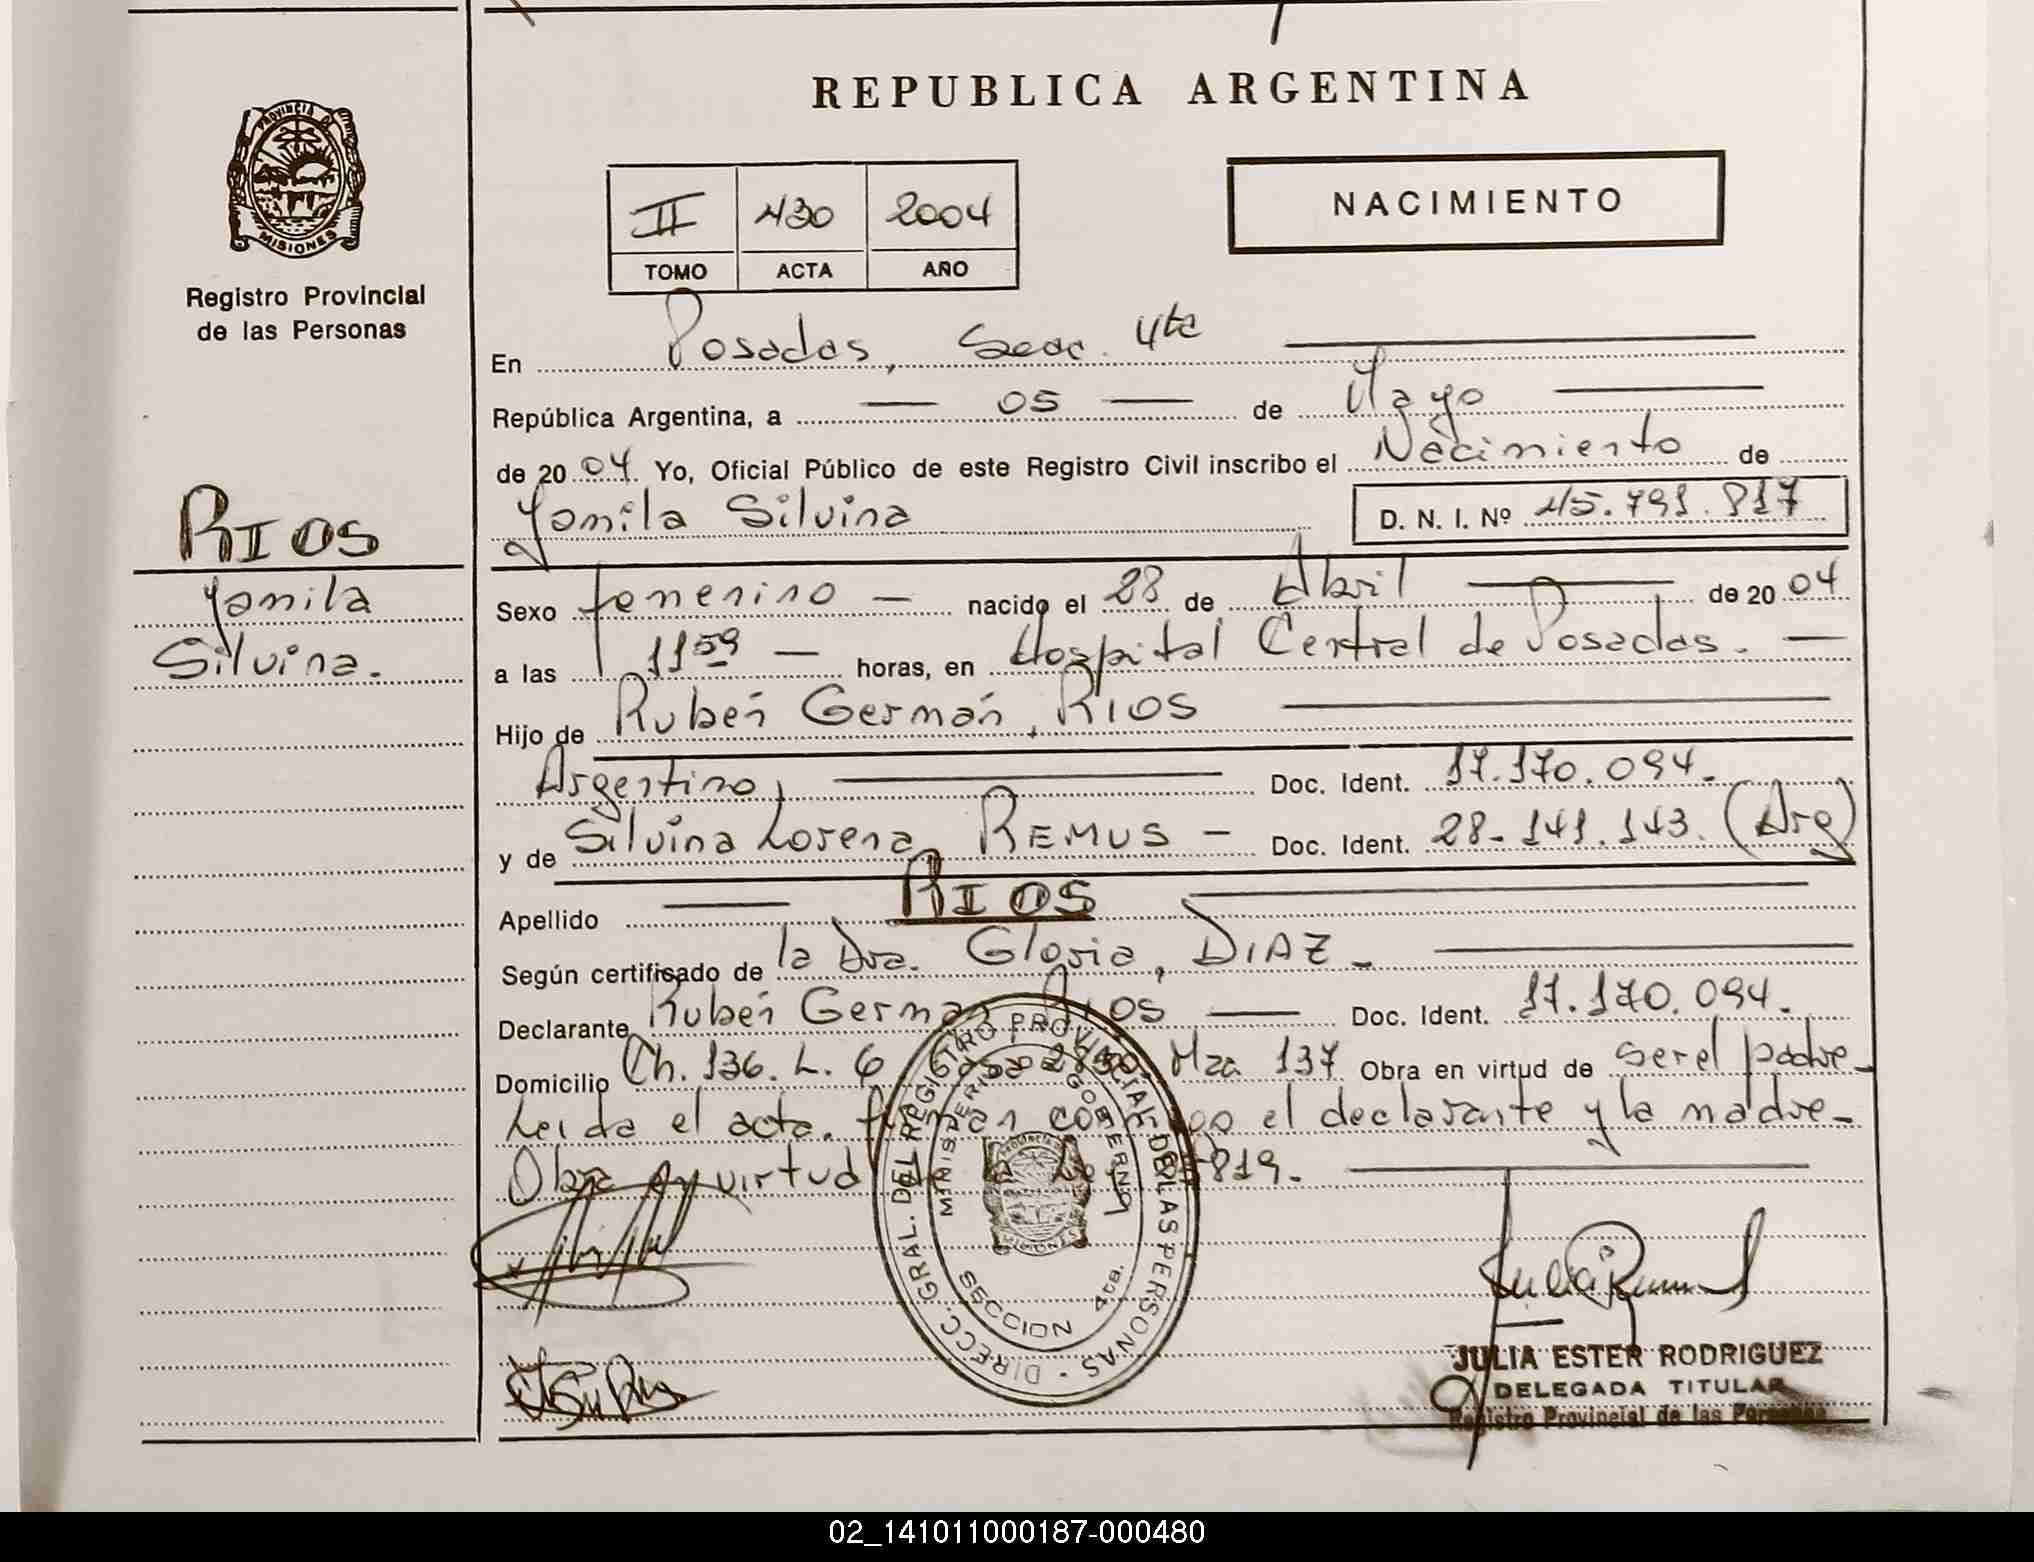 REPUBLICA ARGENTINA
PROVINCIA DE
MISIONES
Registro Provincial
de las Personas
NACIMIENTO
II 430 2004
TOMO ACTA AÑO
En Posadas, Secc. 4ta
República Argentina, a — 05 — de Mayo
de 2004. Yo, Oficial Público de este Registro Civil inscribo el Nacimiento de
Yamila Silvina D. N. I. Nº 45.791.817
RIOS
Yamila
Silvina.
Sexo femenino — nacido el 28 de Abril de 2004
a las 11 59 — horas, en Hospital Central de Posadas. —
Hijo de Rubén Germán, RIOS
Argentino, Doc. Ident. 17.170.094.
y de Silvina Lorena, REMUS — Doc. Ident. 28-141.143. (Arg)
Apellido RIOS
Según certificado de la Dra. Gloria, DIAZ.
Declarante Rubén Germán RIOS — Doc. Ident. 17.170.094.
Domicilio Ch. 136. L. 6 Casa Mza. 137 Obra en virtud de ser el padre
Leída el acta, firman conmigo el declarante y la madre
Obra en virtud 819.
DIRECC. GRAL. DEL REGISTRO PROVINCIAL DE LAS PERSONAS
MINISTERIO GOBIERNO
MISIONES
SECCION 4ta.
JULIA ESTER RODRIGUEZ
DELEGADA TITULAR
Registro Provincial de las Personas
02_141011000187-000480